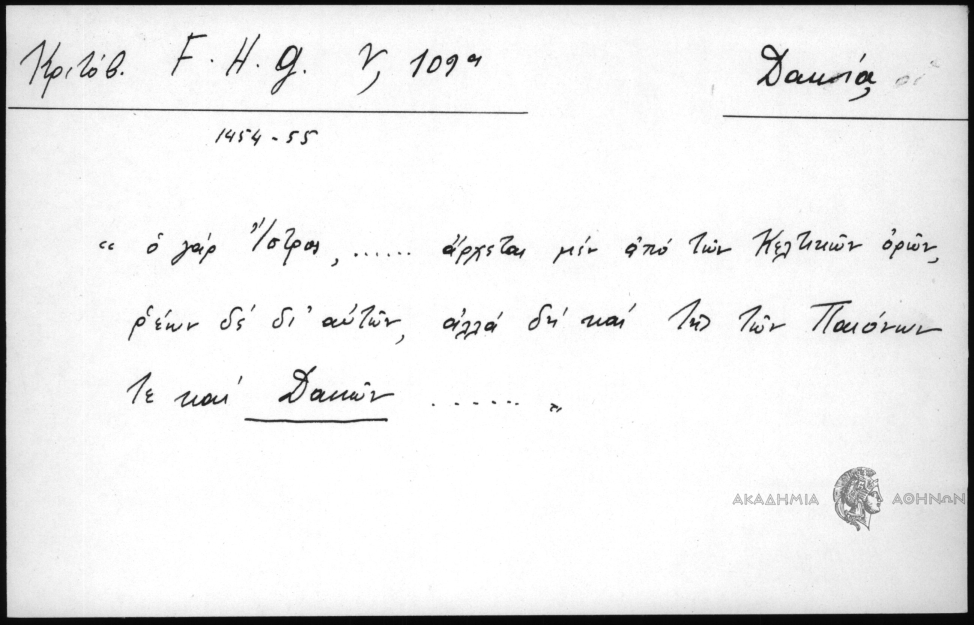 Κριτόβ. F. H. G. V, 109α
Δακία,
1454-55
“ ὁ γάρ Ἴστρος, ...... ἄρχεται μέν ἀπό τῶν Κελτικῶν ὀρῶν,
ῥέων δέ δι' αὐτῶν, ἀλλά δή καί τῆς τῶν Παιόνων
τε καί Δακῶν ...... „
ΑΚΑΔΗΜΙΑ ΑΘΗΝΩΝ